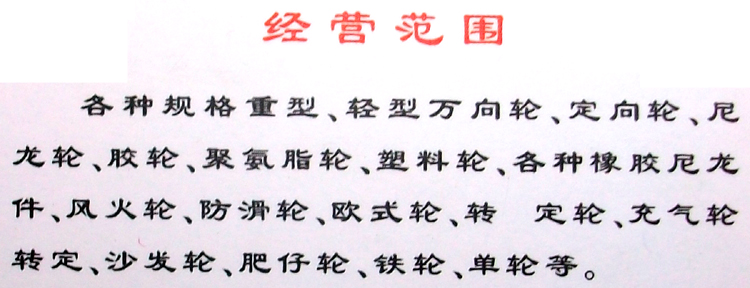 经营范围
各种规格重型、轻型万向轮、定向轮、尼
龙轮、胶轮、聚氨脂轮、塑料轮、各种橡胶尼龙
件、风火轮、防滑轮、欧式轮、转 定轮、充气轮
转定、沙发轮、肥仔轮、铁轮、单轮等。